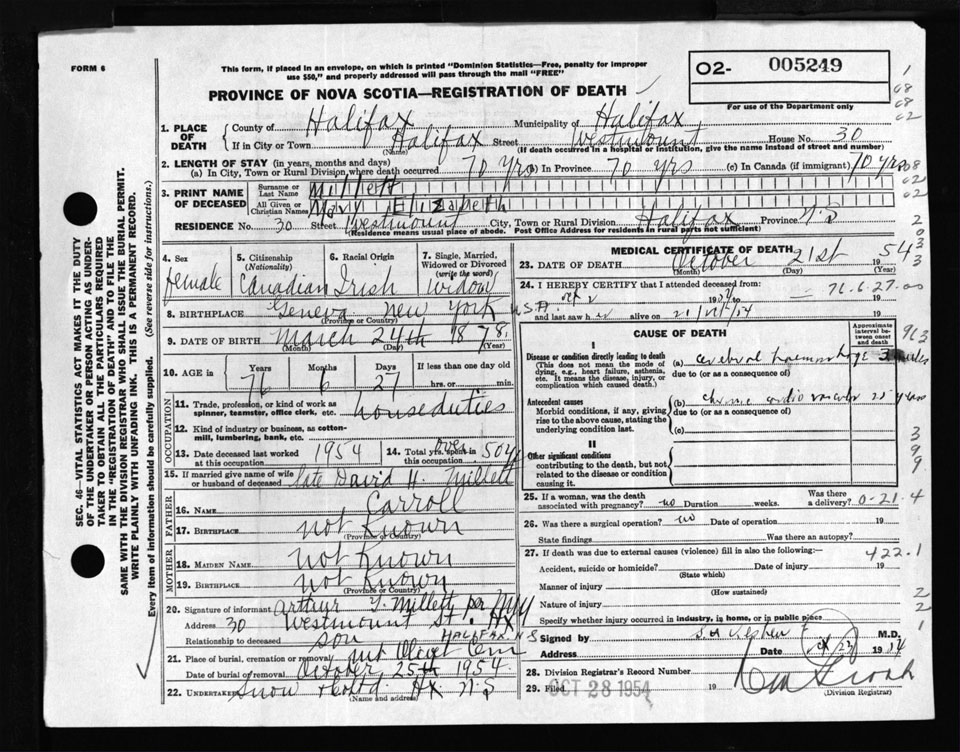 FORM 6
This form, if placed in an envelope, on which is printed "Dominion Statistics—Free, penalty for improper
use $50," and properly addressed will pass through the mail "FREE"
PROVINCE OF NOVA SCOTIA—REGISTRATION OF DEATH
02- 005249
For use of the Department only
1. PLACE OF DEATH
County of Halifax Municipality of Halifax
If in City or Town Halifax Street Westmount House No. 30
(Name) (If death occurred in a hospital or institution, give the name instead of street and number)
2. LENGTH OF STAY (in years, months and days)
(a) In City, Town or Rural Division where death occurred 70 yrs (b) In Province 70 yrs (c) In Canada (if immigrant) 70 yrs
3. PRINT NAME OF DECEASED
Surname or Last Name Millett
All Given or Christian Names Mary Elizabeth
RESIDENCE No. 30 Street Westmount City, Town or Rural Division Halifax Province N.S
(Residence means usual place of abode. Post Office Address for residents in rural parts not sufficient)
4. Sex female
5. Citizenship (Nationality) Canadian
6. Racial Origin Irish
7. Single, Married, Widowed or Divorced (write the word) Widow
8. BIRTHPLACE Geneva New York U.S.A.
(Province or Country)
9. DATE OF BIRTH March 24th 1878
(Month) (Day) (Year)
10. AGE in Years Months Days If less than one day
76 6 27 hrs. or min.
OCCUPATION
11. Trade, profession, or kind of work as spinner, teamster, office clerk, etc. house duties
12. Kind of industry or business, as cotton-mill, lumbering, bank, etc.
13. Date deceased last worked at this occupation 1954
14. Total yrs. spent in this occupation Over 50 yrs
15. If married give name of wife or husband of deceased late David H. Millett
FATHER
16. NAME Carroll
17. BIRTHPLACE not Known
(Province or Country)
MOTHER
18. MAIDEN NAME not Known
19. BIRTHPLACE not Known
(Province or Country)
20. Signature of informant Arthur Millett per
Address 30 Westmount St. Hx
HALIFAX N S
Relationship to deceased son
21. Place of burial, cremation or removal Mt Olivet Cem
Date of burial or removal October 25th 1954
22. Undertaker Snow & Co Ltd Hx N.S
(Name and address)
MEDICAL CERTIFICATE OF DEATH
23. DATE OF DEATH October 21st 1954
(Month) (Day) (Year)
24. I HEREBY CERTIFY that I attended deceased from:
76.6.27.00
and last saw her alive on 19
CAUSE OF DEATH
Approximate interval between onset and death
I
Disease or condition directly leading to death
(This does not mean the mode of dying, e.g., heart failure, asthenia, etc. It means the disease, injury, or complication which caused death.)
(a) cerebral haemorrhage
due to (or as a consequence of)
Antecedent causes
Morbid conditions, if any, giving rise to the above cause, stating the underlying condition last.
(b) chronic cardio vascular years
due to (or as a consequence of)
(c)
II
Other significant conditions
contributing to the death, but not related to the disease or condition causing it.
25. If a woman, was the death associated with pregnancy? no Duration weeks. Was there a delivery? 0-21-4
26. Was there a surgical operation? no Date of operation 19
State findings Was there an autopsy?
27. If death was due to external causes (violence) fill in also the following:— 422.1
Accident, suicide or homicide? Date of injury 19
(State which)
Manner of injury
(How sustained)
Nature of injury
Specify whether injury occurred in industry, in home, or in public place
Signed by M.D.
Address Date Oct 23 1954
28. Division Registrar's Record Number
29. Filed OCT 28 1954 19
(Division Registrar)
SEC. 46—VITAL STATISTICS ACT MAKES IT THE DUTY
OF THE UNDERTAKER OR PERSON ACTING AS UNDER-
TAKER TO OBTAIN ALL THE PARTICULARS REQUIRED
IN THE "REGISTRATION OF DEATH" AND TO FILE THE
SAME WITH THE DIVISION REGISTRAR WHO SHALL ISSUE THE BURIAL PERMIT.
WRITE PLAINLY WITH UNFADING INK. THIS IS A PERMANENT RECORD.
Every item of information should be carefully supplied. (See reverse side for instructions.)